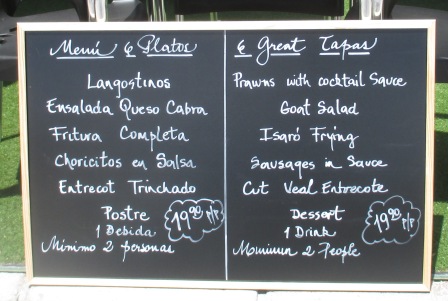 Menú 6 Platos
Langostinos
Ensalada Queso Cabra
Fritura Completa
Choricitos en Salsa
Entrecot Trinchado
Postre
1 Bebida
19'90 P/P
Mínimo 2 personas
6 Great Tapas
Prawns with cocktail Sauce
Goat Salad
Isaró Frying
Sausages in Sauce
Cut Veal Entrecote
Dessert
1 Drink
19'90 P/P
Mominun 2 People